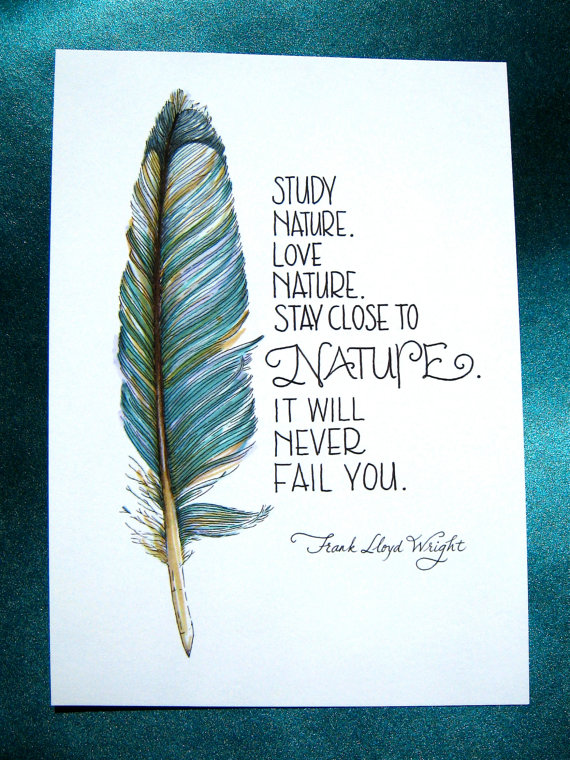 STUDY
NATURE.
LOVE
NATURE.
STAY CLOSE TO
NATURE.
IT WILL
NEVER
FAIL YOU.
Frank Lloyd Wright